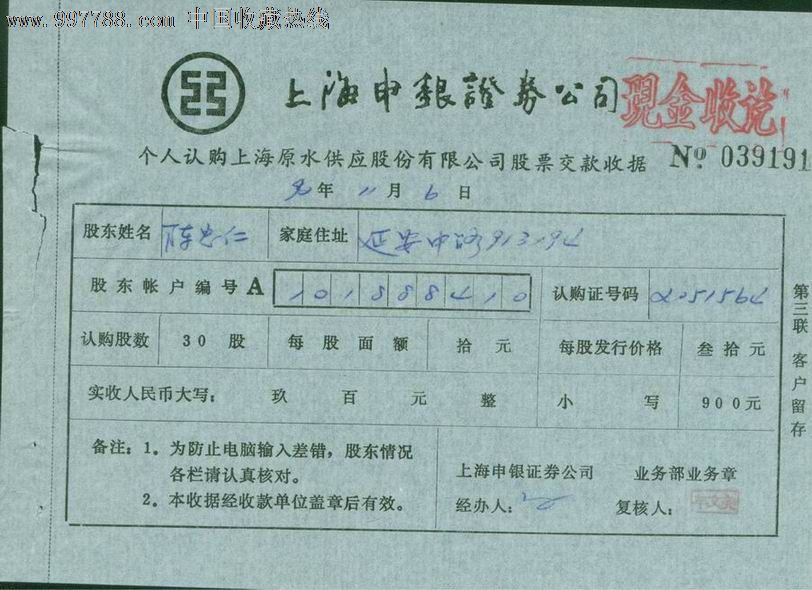 www.997788.com 中国收藏热线
上海申銀證券公司 現金收讫
个人认购上海原水供应股份有限公司股票交款收据 Nº 039191
年 11 月 6 日
股东姓名 陈忠仁 家庭住址 延安中路913弄
股东帐户编号 A 101888410 认购证号码
认购股数 30 股 每股面额 拾元 每股发行价格 叁拾元
实收人民币大写: 玖 百 元 整 小 写 900元
备注: 1. 为防止电脑输入差错, 股东情况
各栏请认真核对。
2. 本收据经收款单位盖章后有效。
上海申银证券公司 业务部业务章
经办人: 复核人:
第三联 客户留存